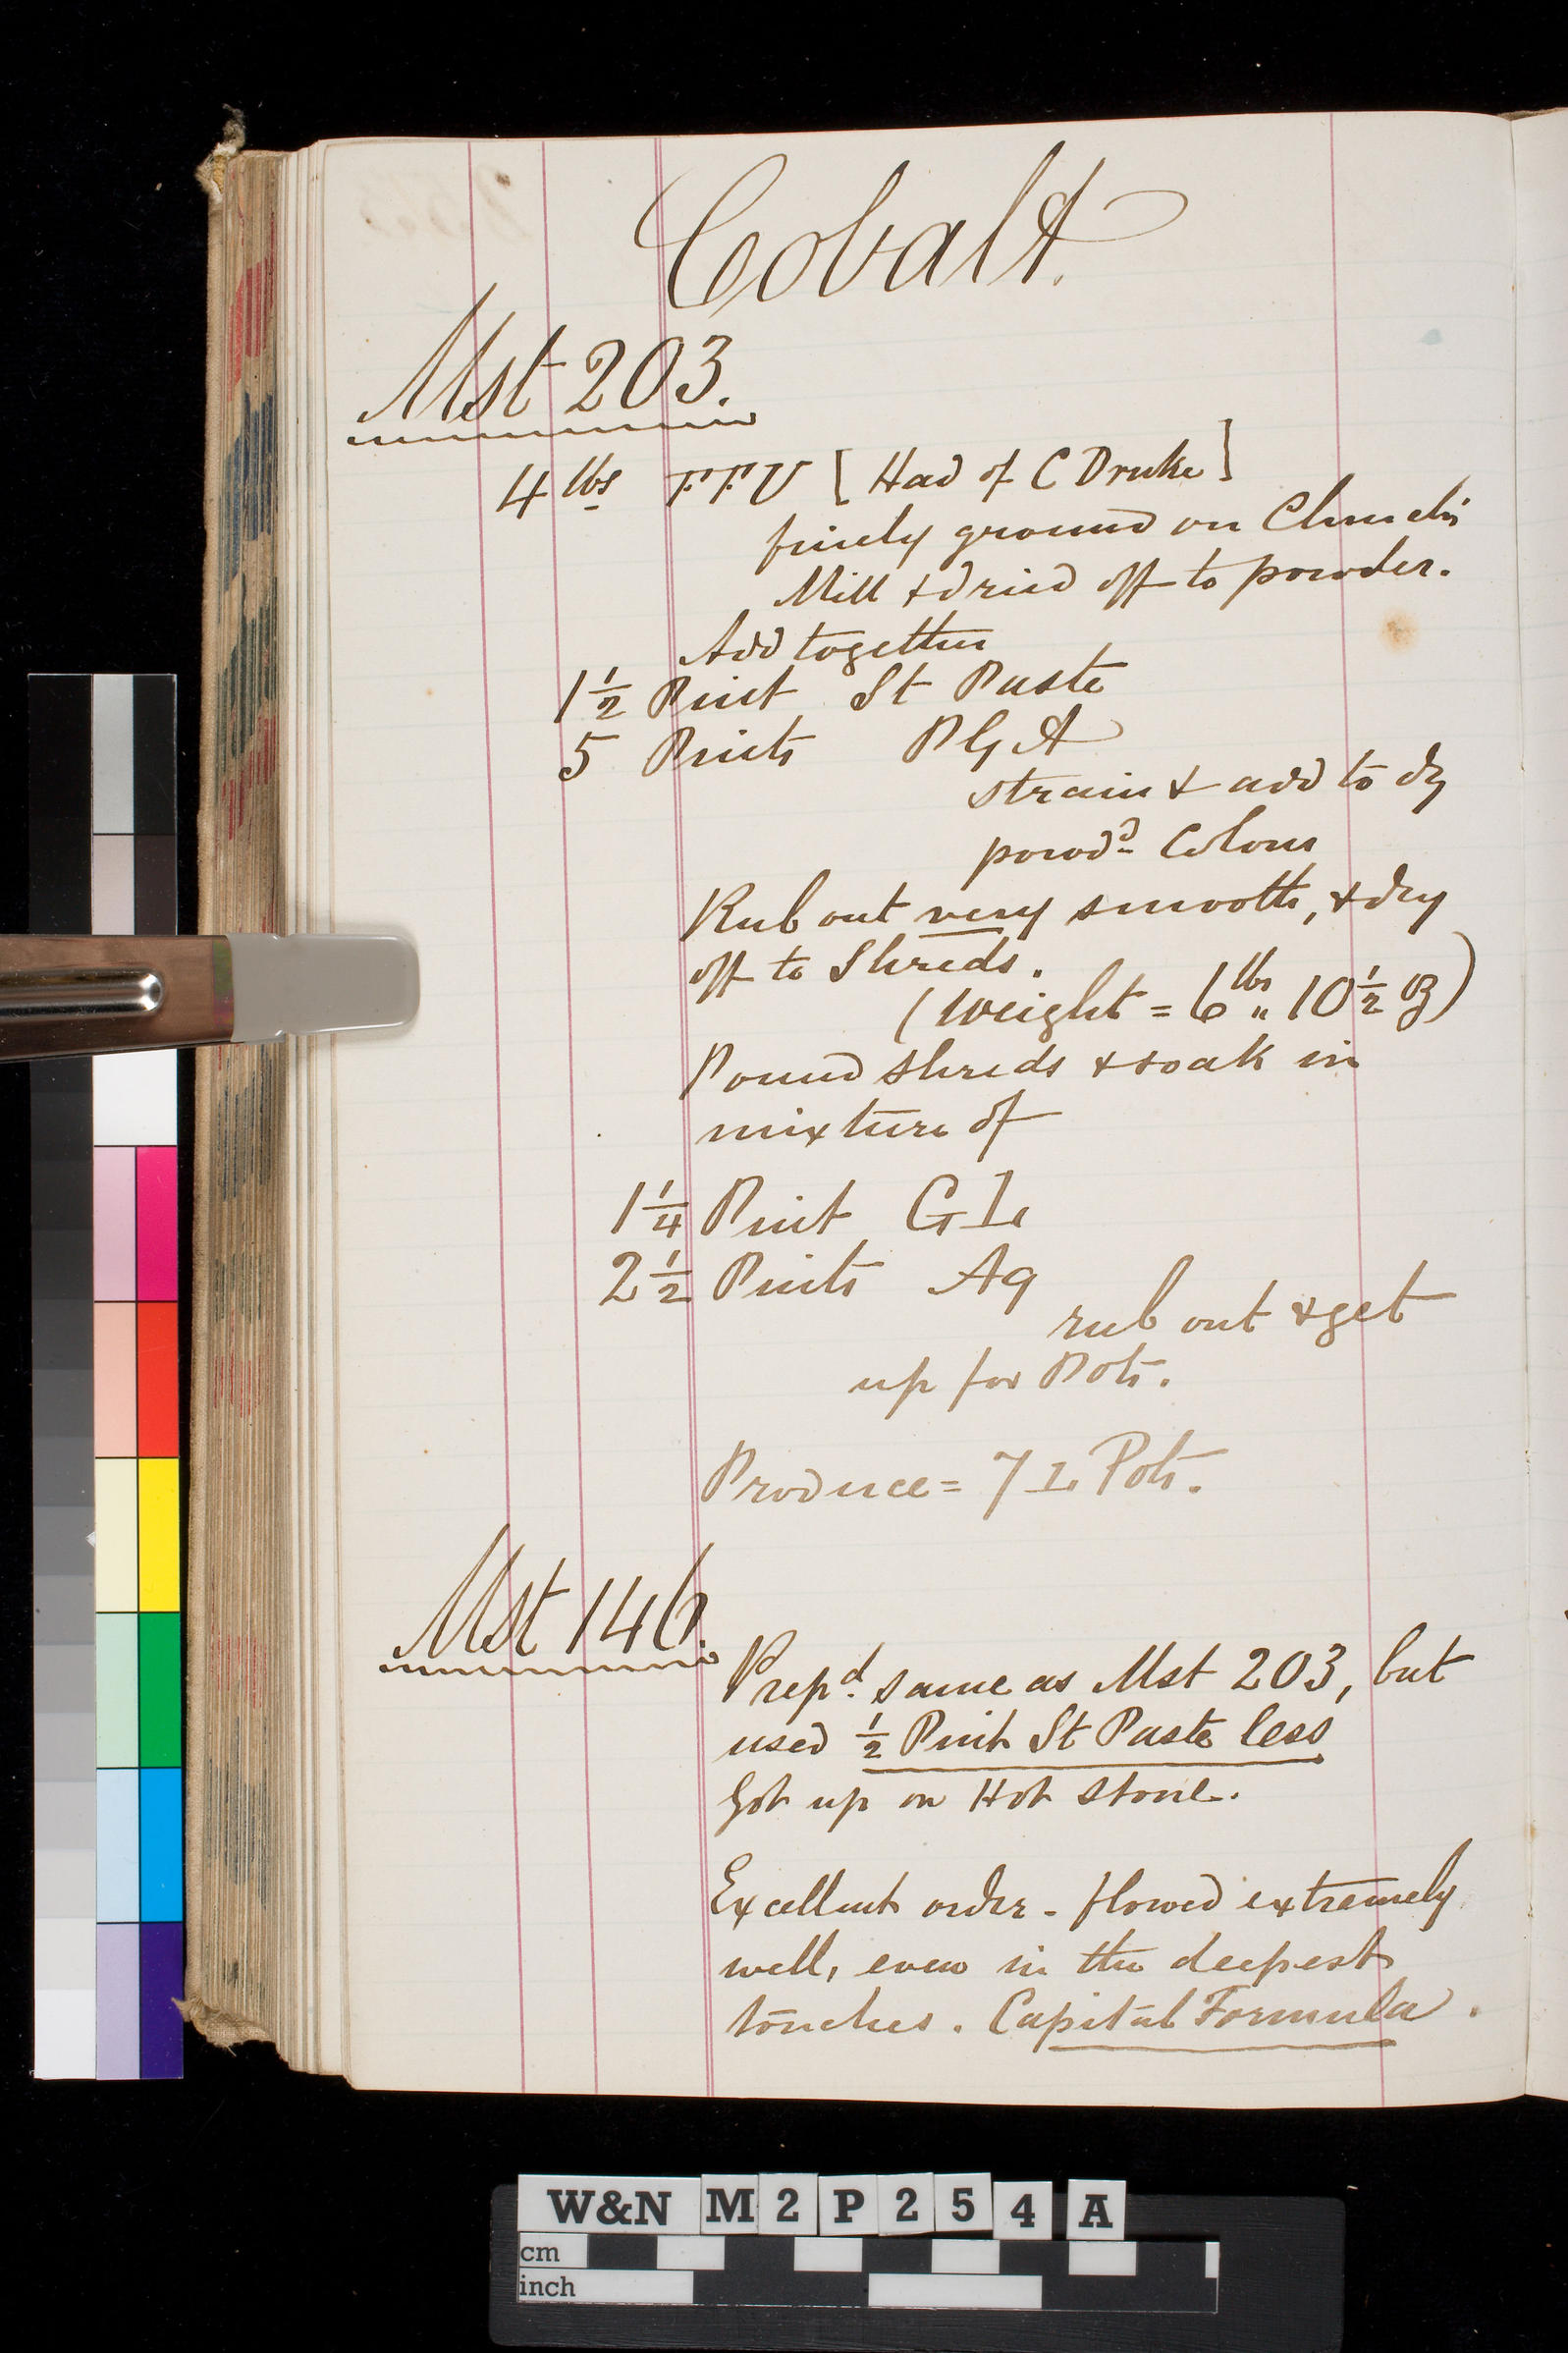 Cobalt.
Mst 203.
4 lbs FFU [Had of C Druke]
finely ground on Church's
Mill & dried off to powder.
Add together
1½ Pint St Paste
5 Pints P G A
strain & add to dy
powdd Colour
Rub out very smooth, & dry
off to Shreds.
(Weight = 6 lbs " 10½ oz)
Pound shreds & soak in
mixture of
1¼ Pint GL
2½ Pints Aq
rub out & get
up for Pots.
Produce = 7 L Pots.
Mst 146.
Prepd. same as Mst 203, but
used ½ Pint St Paste less
Got up on Hot Stone.
Excellent order - flowed extremely
well, even in the deepest
touches. Capital Formula.
W&N M2P254A
cm
inch